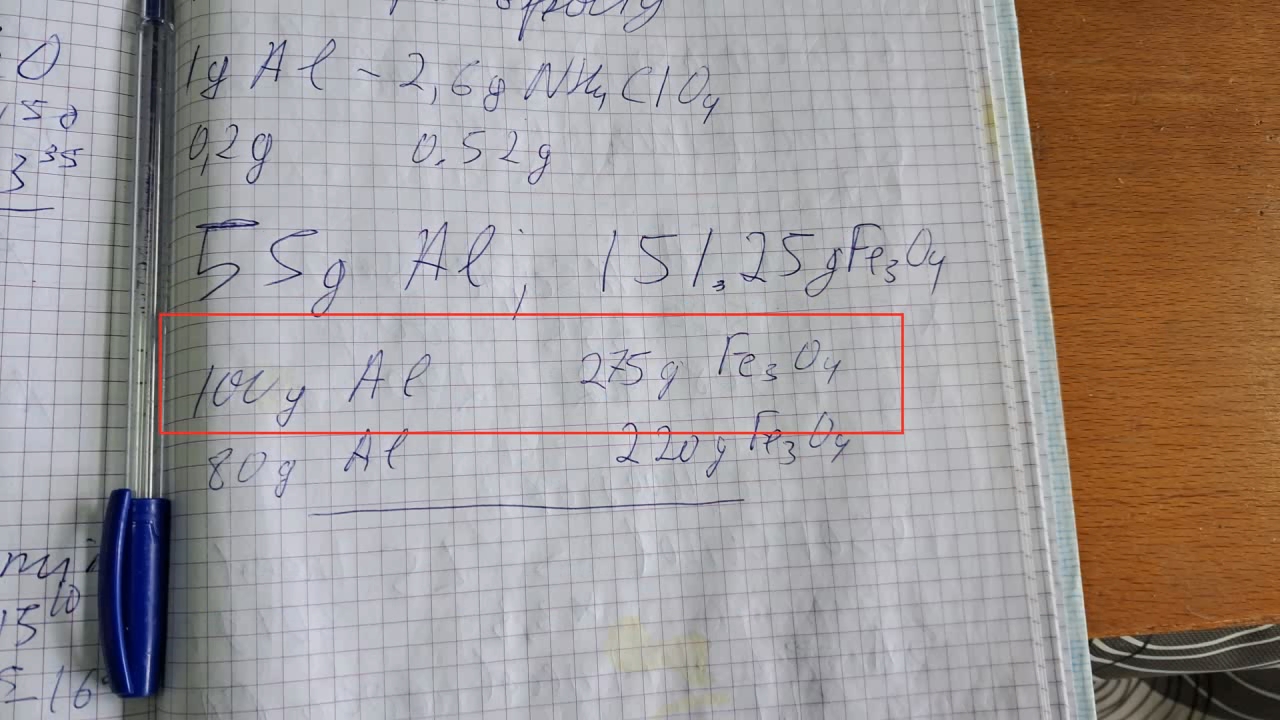 1g Al - 2,6g NH4ClO4
0,2g 0.52g
55g Al; 151.25g Fe3O4
100g Al 275g Fe3O4
80g Al 220g Fe3O4